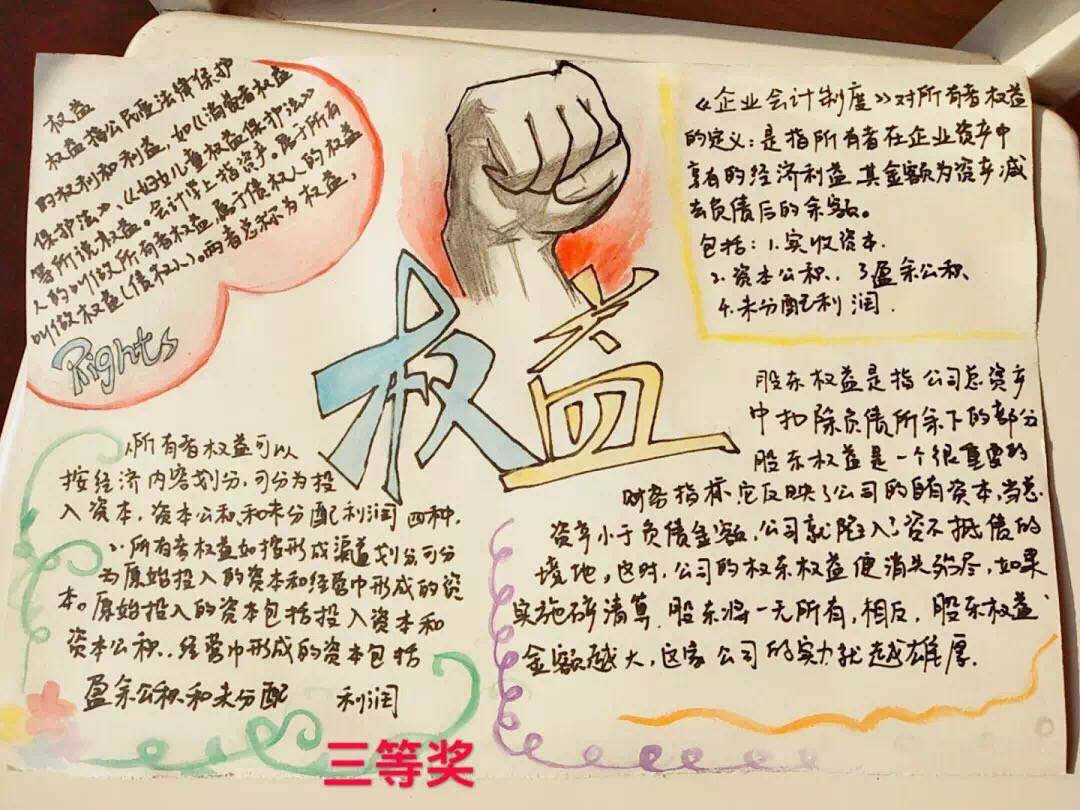 权益
权益指公民受法律保护
的权利和利益,如《消费者权益
保护法》、《妇女儿童权益保护法》
等所统权益。会计学上指资产。属于所有
人的叫做所有者权益,属于债权人的权益
叫做权益(债权人)。两者总称为权益,
Rights
权益
《企业会计制度》对所有者权益
的定义:是指所有者在企业资产中
享有的经济利益其金额为资产减
去负债后的余额。
包括:1.实收资本.
2.资本公积. 3盈余公积
4.未分配利润.
1.所有者权益可以
按经济内容划分,可分为投
入资本,资本公积和未分配利润四种.
2.所有者权益如按形成渠道划分,可分
为原始投入的资本和经营中形成的资
本。原始投入的资本包括投入资本和
资本公积.经营中形成的资本包括
盈余公积和未分配 利润
股东权益是指公司总资产
中扣除负债所余下的部分
股东权益是一个很重要的
财务指标,它反映了公司的自有资本,当总
资产小于负债金额,公司就陷入了资不抵债的
境地,这时,公司的权东权益便消失殆尽,如果
实施破清算.股东将一无所有,相反,股东权益
金额越大,这家公司的实力就越雄厚.
三等奖